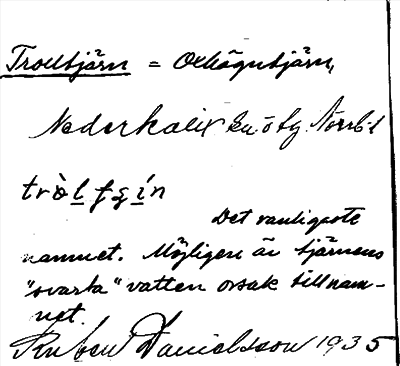 Trolltjärn = Olhögntjärn,
Nederkalix sn o tg. Norrb. l
tròlfʂin
Det vanligaste
namnet. Möjligen är tjärnens
"svarta" vatten orsak till nam-
net.
Ruben Danielsson 1935